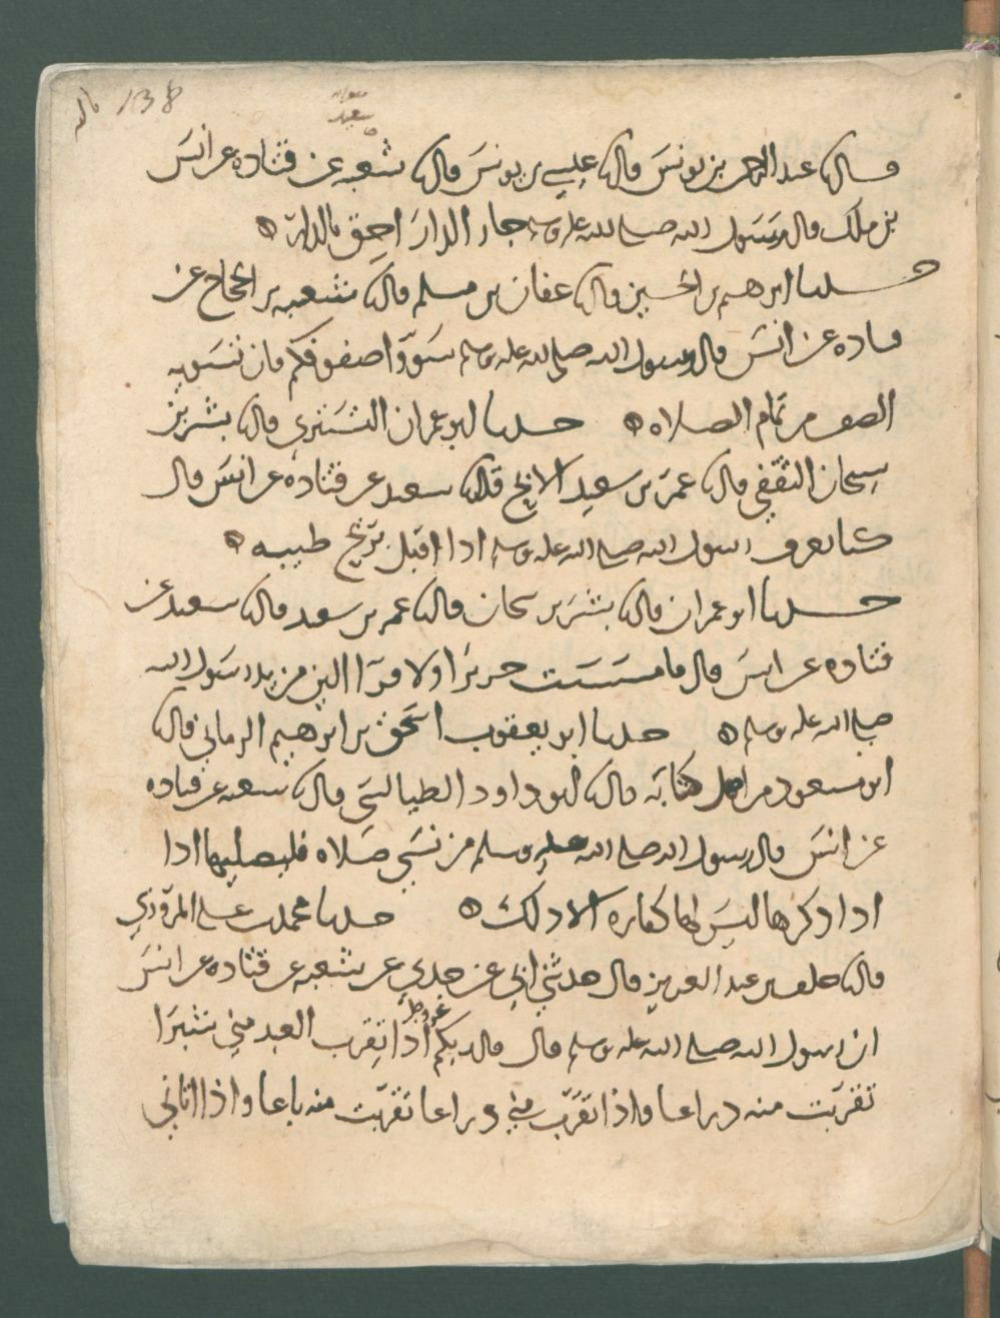 138
سعيد
قال عبد الرحمن بن يونس قال عيسى بن يونس قال شعبه عن قتاده عن انس
بن ملك قال رسول الله صلى الله عليه وسلم جار الدار احق بالدار ه
حدثنا ابرهيم بن الحسين قال عفان بن مسلم قال شعبه بن الحجاج عن
قتاده عن انس قال رسول الله صلى الله عليه وسلم سووا صفوفكم فان تسويه
الصف من تمام الصلاه ه حدثنا ابو عمران التستري قال بشر بن
سيحان الثقفي قال عمر بن سعيد الابح قال سعيد عن قتاده عن انس قال
كنا نعرف رسول الله صلى الله عليه وسلم اذا اقبل بريح طيبه ه
حدثنا ابو عمران قال بشر بن سيحان قال عمر بن سعيد قال سعيد عن
قتاده عن انس قال ما مسست حريرا ولا قزا الين من يد رسول الله
صلى الله عليه وسلم ه حدثنا ابو يعقوب اسحق بن ابرهيم الرماني قال
ابن مسعود من اصل كتابه قال ابو داود الطيالسي قال شعبه عن قتاده
عن انس قال رسول الله صلى الله عليه وسلم من نسي صلاه فليصليها اذا
اذا ذكرها ليس لها كفاره الا ذلك ه حدثنا محمد بن علي المروزي
قال خلف بن عبد العزيز قال حدثني ابي عن جدي عن شعبه عن قتاده عن انس
ان رسول الله صلى الله عليه وسلم قال قال ربكم عز وجل اذا تقرب العبد مني شبرا
تقربت منه ذراعا واذا تقرب مني ذراعا تقربت منه باعا واذا اتاني